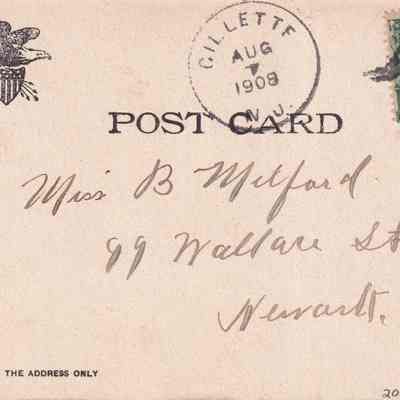 GILLETTE
AUG
7
1908
N.J.
POST CARD
Miss B Milford
99 Wallace St
Newark.
THE ADDRESS ONLY
20